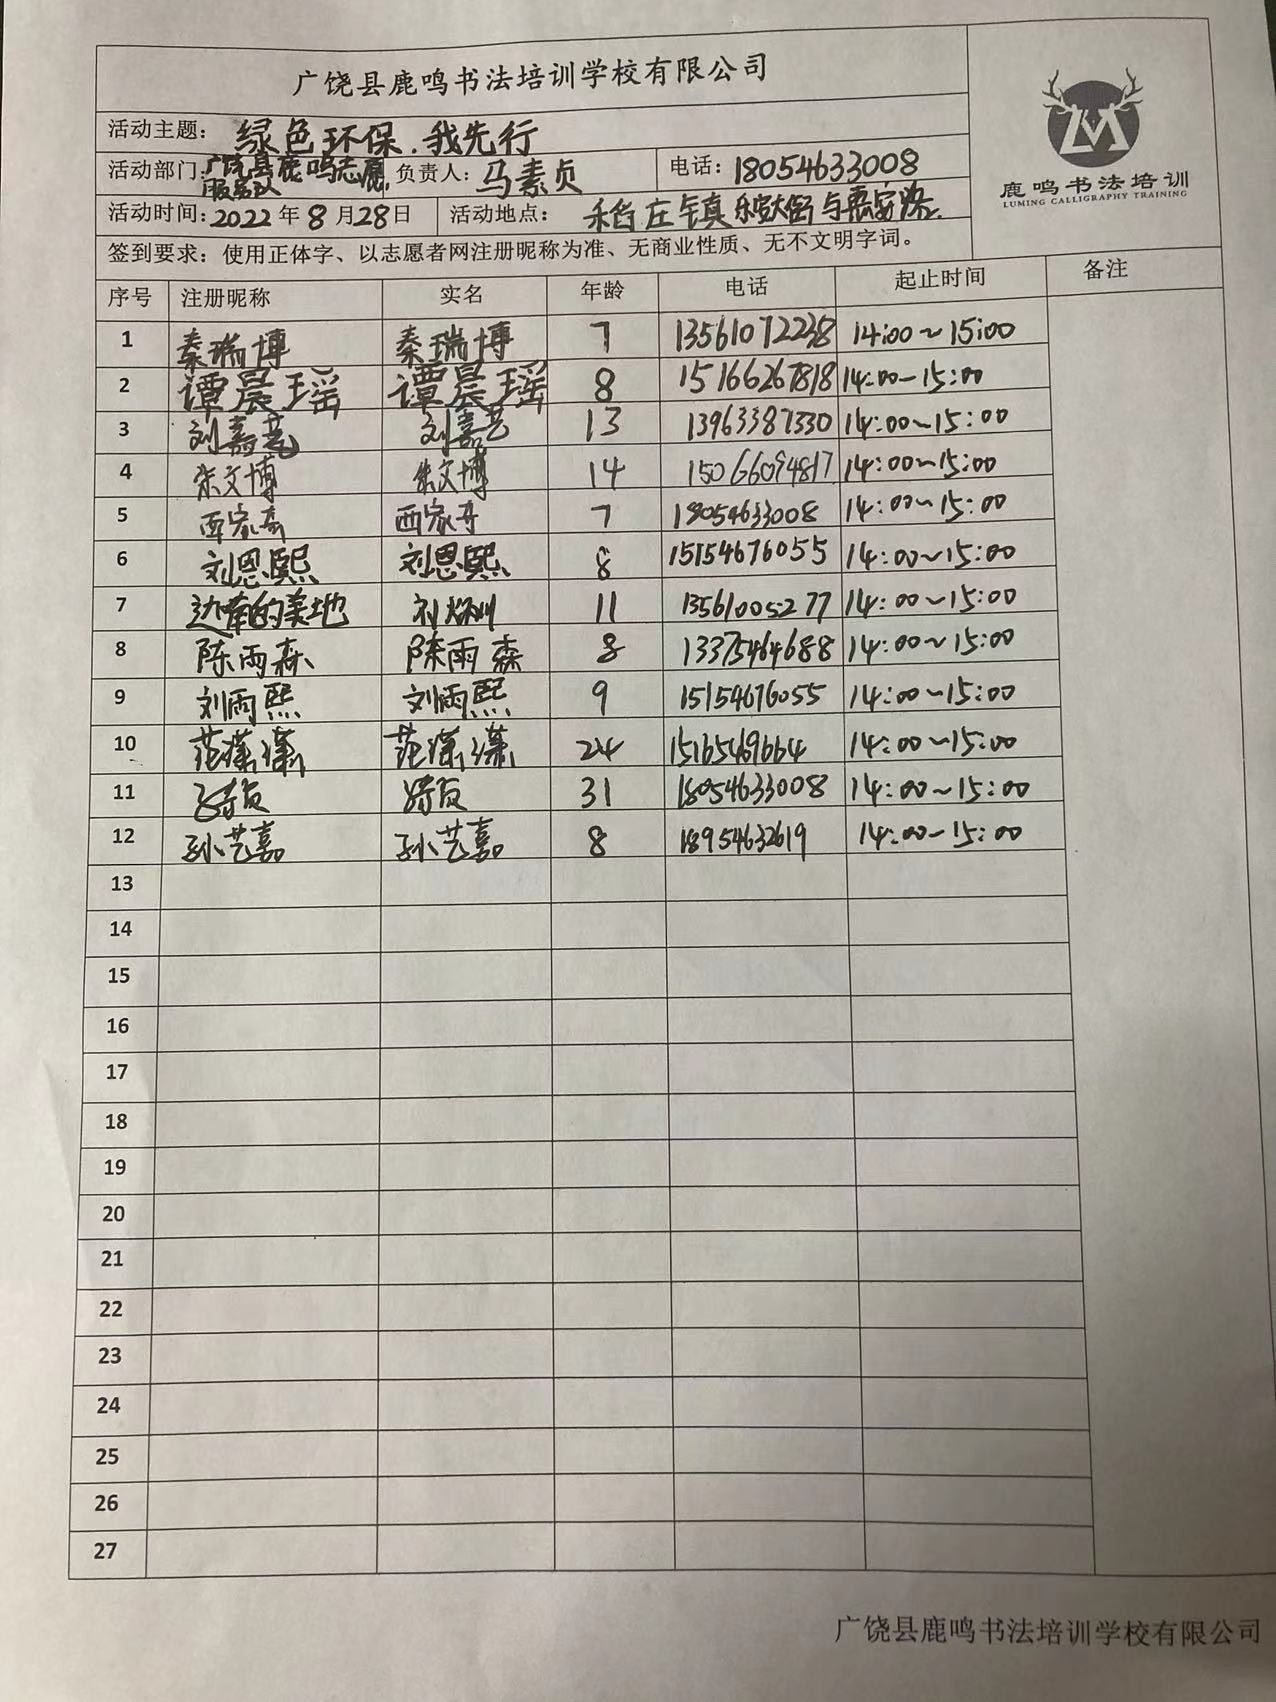 广饶县鹿鸣书法培训学校有限公司
鹿鸣书法培训
LUMING CALLIGRAPHY TRAINING
活动主题: 绿色环保.我先行
活动部门: 广饶县鹿鸣志愿服务队 负责人: 马素贞 电话: 18054633008
活动时间: 2022年8月28日 活动地点: 稻庄镇
签到要求: 使用正体字、以志愿者网注册昵称为准、无商业性质、无不文明字词。
序号 注册昵称 实名 年龄 电话 起止时间 备注
1 秦瑞博 秦瑞博 7 13561072238 14:00~15:00
2 谭晨瑶 谭晨瑶 8 15166267818 14:00-15:00
3 刘嘉艺 刘嘉艺 13 13963387330 14:00~15:00
4 张文博 张文博 14 15066094817 14:00~15:00
5 西家奇 西家奇 7 18054633008 14:00~15:00
6 刘恩熙 刘恩熙 8 15154676055 14:00~15:00
7 的美地 11 13561005277 14:00~15:00
8 陈雨森 陈雨森 8 13375464688 14:00~15:00
9 刘雨熙 刘雨熙 9 15154676055 14:00~15:00
10 范潇潇 范潇潇 24 15165469664 14:00~15:00
11 31 18054633008 14:00~15:00
12 孙艺嘉 孙艺嘉 8 18954632619 14:00-15:00
13
14
15
16
17
18
19
20
21
22
23
24
25
26
27
广饶县鹿鸣书法培训学校有限公司